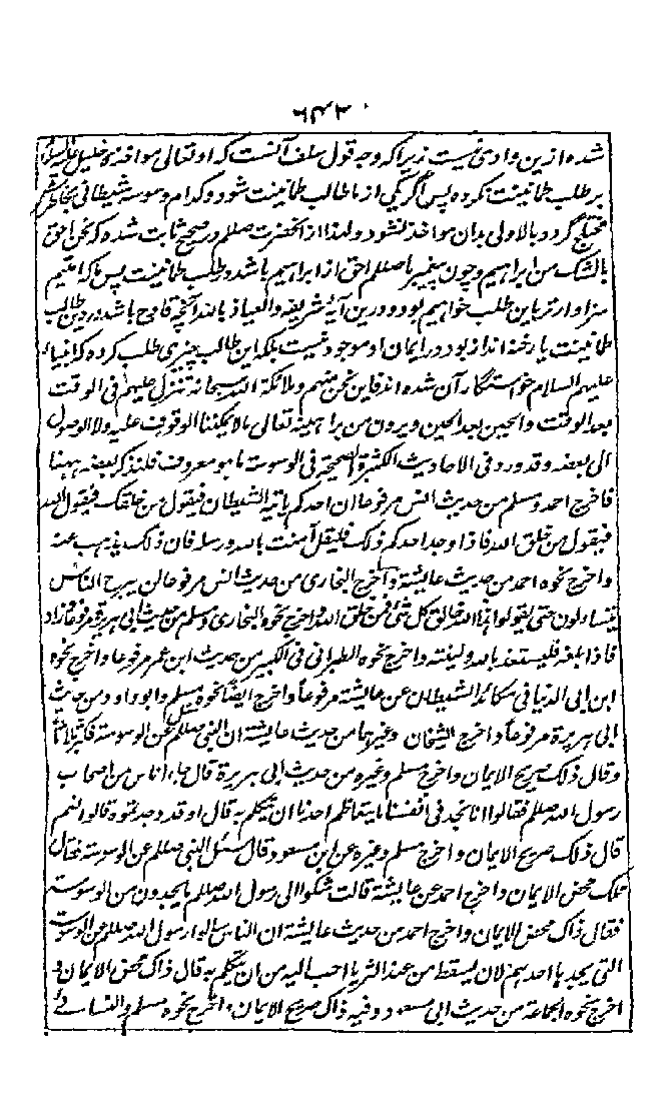 ۶۴۲
شده ازین وادی نیست زیرا که وجه قول سلف آنست که او تعالی مواخذه خلیل علیه السلام
بر طلب طمانینت نکرده پس اگر یکی از ما طالب طمانینت شود و کدام وسوسه شیطانی بخاطرش
مختلج گردد بالاولی بدان مواخذ نشود و لهذا از آنحضرت صلعم در صحیح ثابت شده که نحن احق
بالشک من ابراهیم و چون پیغمبر ما صلعم احق از ابراهیم باشد در طلب طمانینت پس ما که امتیم
سزاوارتر باین طلب خواهیم بود و درین آیهٔ شریفه والعیاذ بالله آنچه قادح باشد در دین طالب
طمانینت یا رخنه انداز بود در ایمان او موجود نیست بلکه این طالب چیزی طلب کرده که انبیاء
علیهم السلام خواستگار آن شده اند فاین نحن منهم و ملائکة الله سبحانه تتنزل علیهم فی الوقت
بعد الوقت والحین بعد الحین ویرون من براهینه تعالی ما لا یمکننا الوقوف علیه ولا الوصول
الی بعضه وقد ورد فی الاحادیث الکثیرة الصحیحة فی الوسوسة ما هو معروف فلنذکر بعضه ههنا
فاخرج احمد ومسلم من حدیث انس مرفوعا ان احدکم یاتیه الشیطان فیقول من خلقک فیقول الله
فیقول من خلق الله فاذا وجد احدکم ذلک فلیقل آمنت بالله ورسله فان ذلک یذهب عنه
واخرج نحوه احمد من حدیث عایشة واخرج البخاری من حدیث انس مرفوعا لن یبرح الناس
یتساءلون حتی یقولوا هذا الله خالق کل شئ فمن خلق الله واخرج نحوه البخاری ومسلم من حدیث ابی هریرة مرفوعا وزاد
فاذا بلغه فلیستعذ بالله ولینته واخرج نحوه الطبرانی فی الکبیر من حدیث ابن عمر مرفوعا واخرج نحوه
ابن ابی الدنیا فی مکائد الشیطان عن عایشة مرفوعاً واخرج ایضا نحوه مسلم وابو داود من حدیث
ابی هریرة مرفوعاً واخرج الشیخان وغیرهما من حدیث عایشة ان النبی صلعم سئل عن الوسوسة فکبر ثلاثا
وقال ذلک صریح الایمان واخرج مسلم وغیره من حدیث ابی هریرة قال جاء اناس من اصحاب
رسول الله صلعم فقالوا انا نجد فی انفسنا ما یتعاظم احدنا ان یتکلم به قال اوقد وجدتموه قالوا نعم
قال ذلک صریح الایمان واخرج مسلم وغیره عن ابن مسعود قال سئل النبی صلعم عن الوسوسة فقال
تلک محض الایمان واخرج احمد عن عایشة قالت شکوا الی رسول الله صلعم ما یجدون من الوسوسة
فقال ذاک محض الایمان واخرج احمد من حدیث عایشة ان الناس سالوا رسول الله صلعم عن الوسوسة
التی یجدها احدهم لان یسقط من عند الثریا احب الیه من ان یتکلم به قال ذاک محض الایمان و
اخرج نحوه الجماعة من حدیث ابی مسعود وفیه ذاک صریح الایمان واخرج نحوه مسلم والنسائے